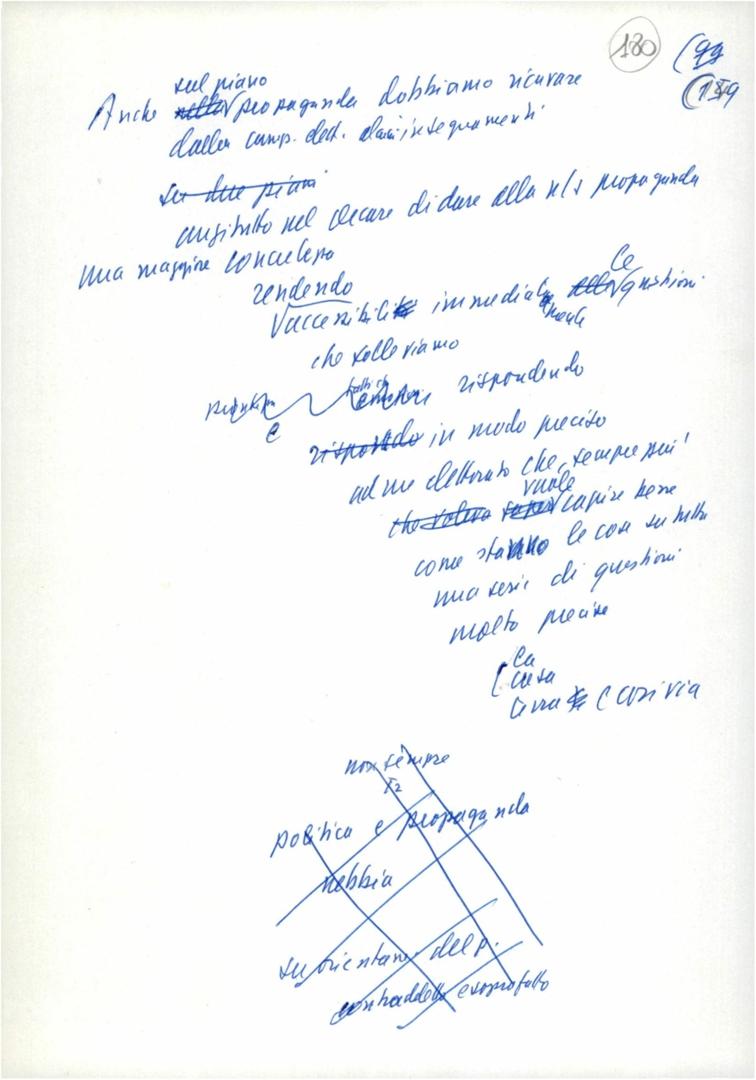 180
(99
sul piano
Anche nella propaganda dobbiamo ricavare
dalla camp. elett. insegnamenti
su due piani
anzitutto nel cercare di dare alla n/s propaganda
una maggiore concretezza
rendendo
le
accessibili immediatamente alle questioni
che solleviamo
rispondendo
rispondendo in modo preciso
ad un elettorato che, sempre più
vuole
che voleva sapere capire bene
come stanno le cose su tutta
una serie di questioni
molto precise
la
casa
e così via
non sempre
politica e propaganda
nebbia
su orientam. del p.
contraddetto e sopraffatto